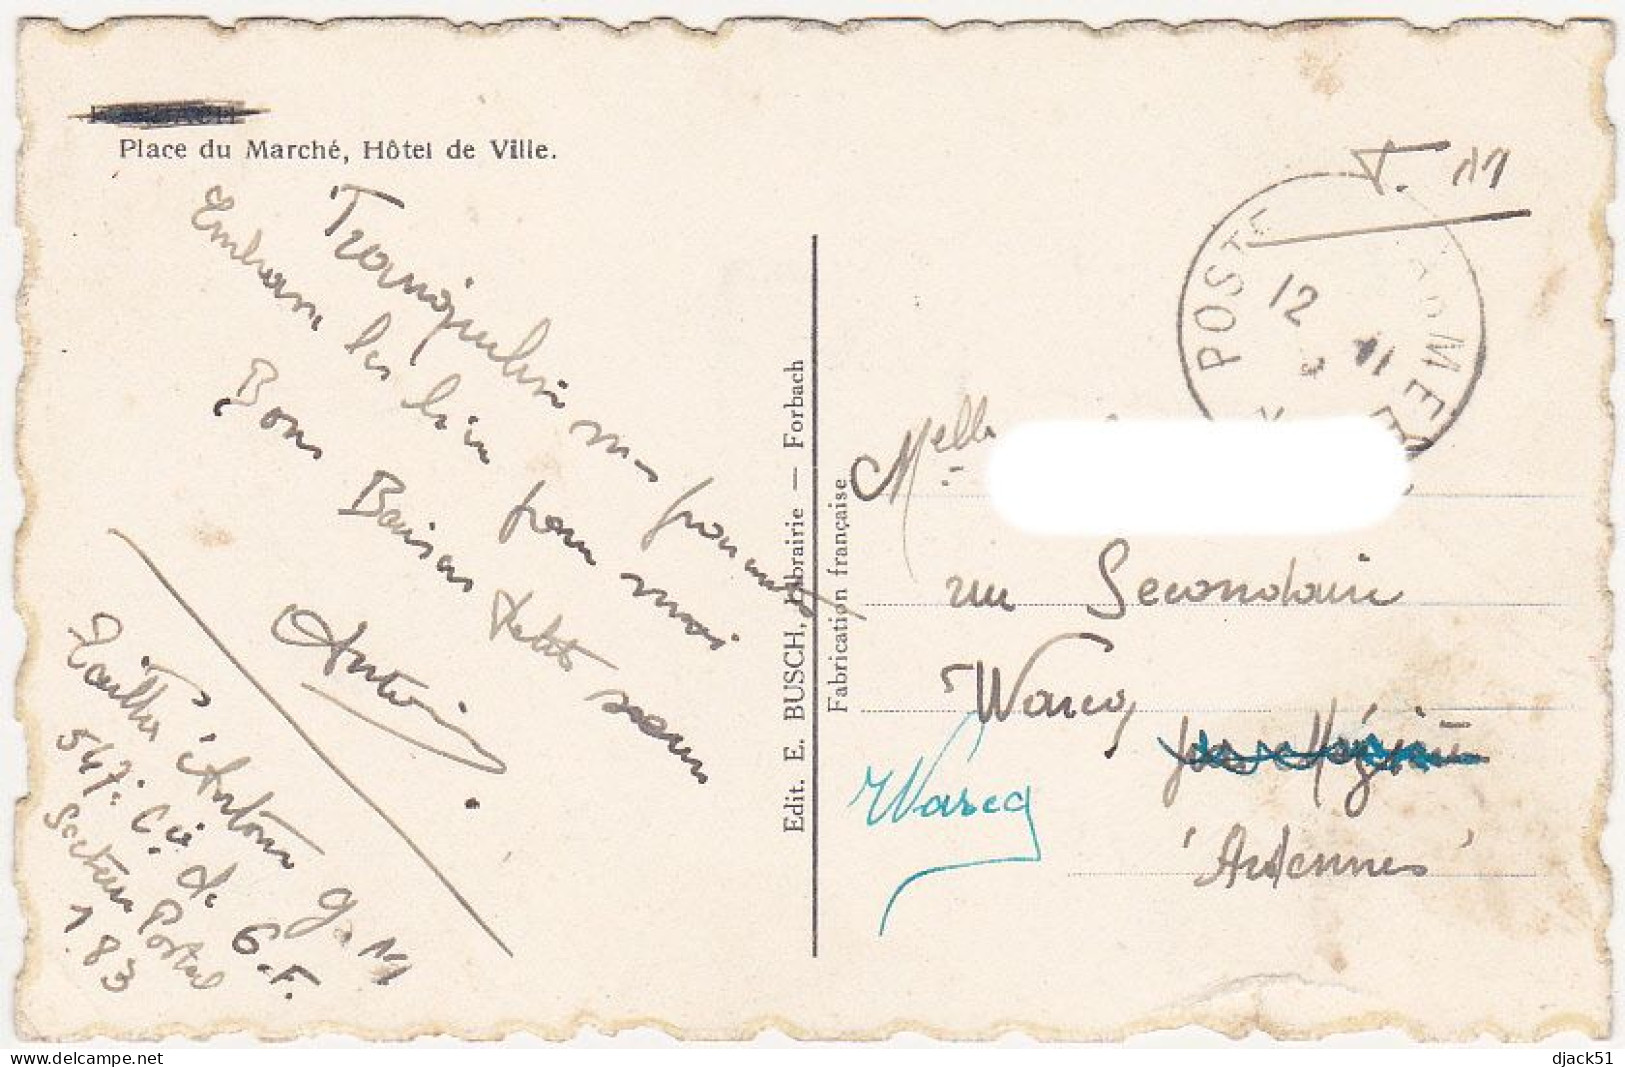 Place du Marché, Hôtel de Ville.
Tranquilise
Embrasse les bien pour moi
Bons Baisers Petite sœur
Antoine
Antoine
547e Cie de G.F.
Secteur Postal
183
Edit. E. BUSCH, Librairie — Forbach
Fabrication française
T. 11
POSTE
12
11
Melle
rue Secondaire
Warcq
Warcq
Ardennes
djack51